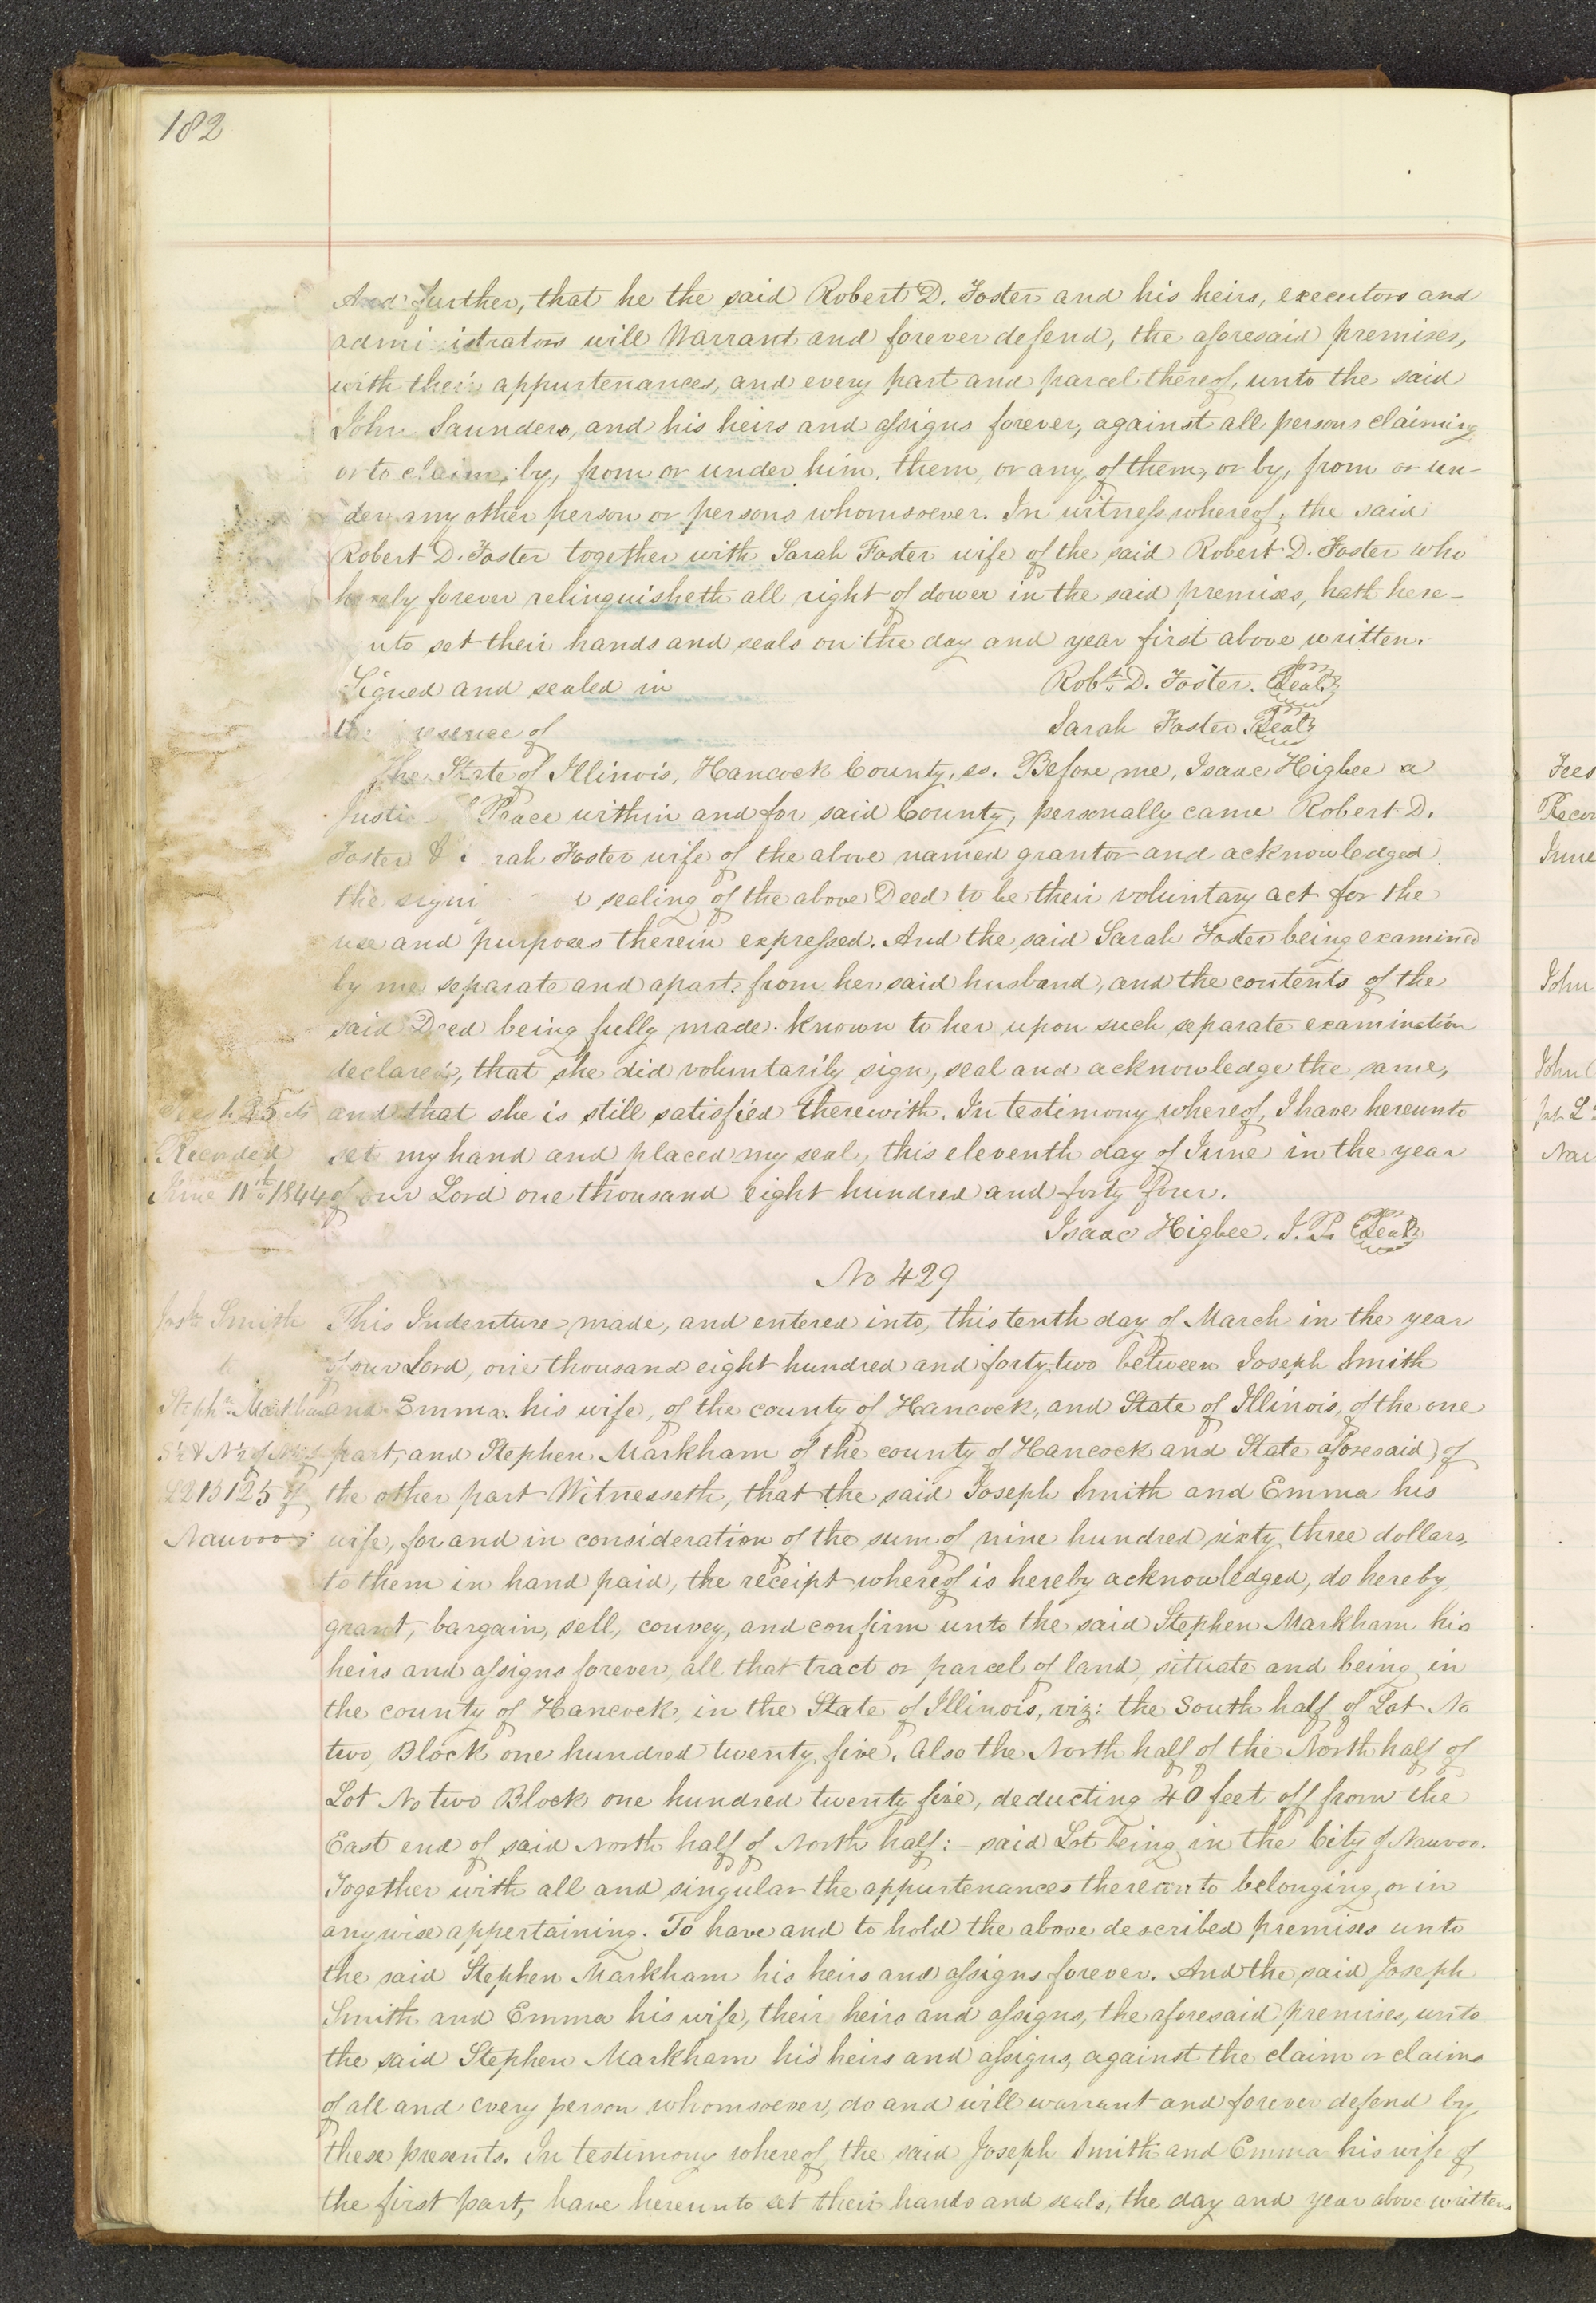 182
And further, that he the said Robert D. Foster and his heirs, executors and
admi istrators will Warrant and forever defend, the aforesaid premises,
with their appurtenances, and every part and parcel thereof, unto the said
John Saunders, and his heirs and assigns forever, against all persons claiming
or to claim, by, from or under him, them, or any of them, or by, from or un-
der any other person or persons whomsoever. In witness whereof, the said
Robert D. Foster together with Sarah Foster wife of the said Robert D. Foster who
hereby forever relinquisheth all right of dower in the said premises, hath here-
unto set their hands and seals on the day and year first above written.
Signed and sealed in
Robt. D. Foster. Seal
resence of
Sarah Foster. Seal
The State of Illinois, Hancock County, ss. Before me, Isaac Higbee a
Justic Peace within and for said County, personally came Robert D.
Foster & rah Foster wife of the above named grantor and acknowledged
the signi sealing of the above Deed to be their voluntary act for the
use and purposes therein expressed. And the said Sarah Foster being examined
by me separate and apart from her said husband, and the contents of the
said Deed being fully made known to her upon such separate examination
declared, that she did voluntarily sign, seal and acknowledge the same,
and that she is still satisfied therewith. In testimony whereof, I have hereunto
Recorded set my hand and placed my seal, this eleventh day of June in the year
June 11th 1844 of our Lord one thousand eight hundred and forty four.
Isaac Higbee. J. P. Seal
No 429
Josh Smith This Indenture made, and entered into, this tenth day of March in the year
to of our Lord, one thousand eight hundred and forty, two between Joseph Smith
Stephn Markham and Emma his wife, of the county of Hancock, and State of Illinois, of the one
part, and Stephen Markham of the county of Hancock and State aforesaid of
L2 B125 of the other part Witnesseth, that the said Joseph Smith and Emma his
Nauvoo wife, for and in consideration of the sum of nine hundred sixty three dollars,
to them in hand paid, the receipt whereof is hereby acknowledged, do hereby
grant, bargain, sell, convey, and confirm unto the said Stephen Markham his
heirs and assigns forever, all that tract or parcel of land, situate and being in
the county of Hancock, in the State of Illinois, viz: the South half of Lot No
two, Block one hundred twenty five. Also the North half of the North half of
Lot No two Block one hundred twenty five, deducting 40 feet off from the
East end of said North half of North half:- said Lot being in the City of Nauvoo.
Together with all and singular the appurtenances thereunto belonging, or in
anywise appertaining. To have and to hold the above described premises unto
the said Stephen Markham his heirs and assigns forever. And the said Joseph
Smith and Emma his wife, their heirs and assigns, the aforesaid premises, unto
the said Stephen Markham his heirs and assigns, against the claim or claims
of all and every person whomsoever, do and will warrant and forever defend by
these presents. In testimony whereof, the said Joseph Smith and Emma his wife of
the first part, have hereunto set their hands and seals, the day and year above written
Fees
Recor
June
John
John
Nau